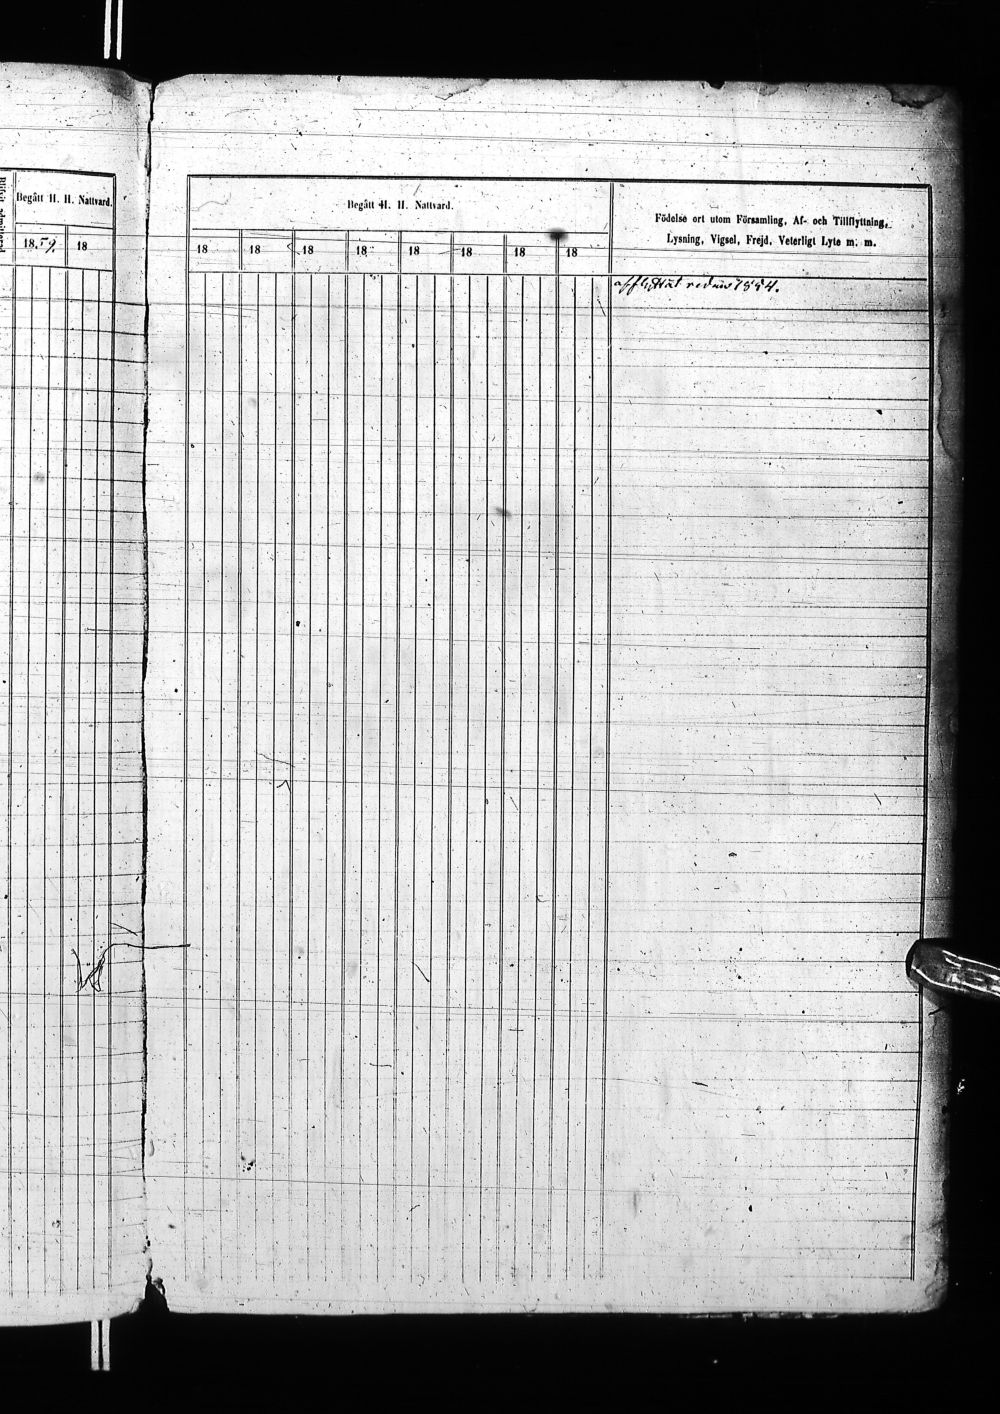 Begått H. H. Nattvard.
18.59. 18
Begått H. H. Nattvard.
18 18 18 18 18 18 18 18
Födelse ort utom Församling, Af- och Tillflyttning,
Lysning, Vigsel, Frejd, Veterligt Lyte m. m.
redan 1854.